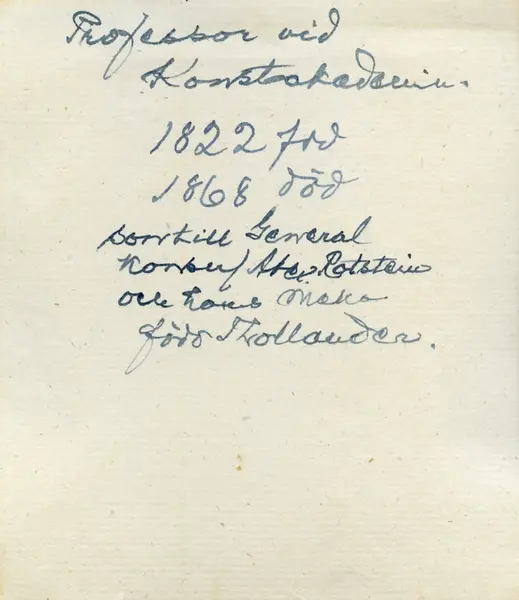 Professor vid
Konstakademin.
1822 född
1868 död
son till General
Konsul Alex Rotstein
och hans Maka
född Thollander.